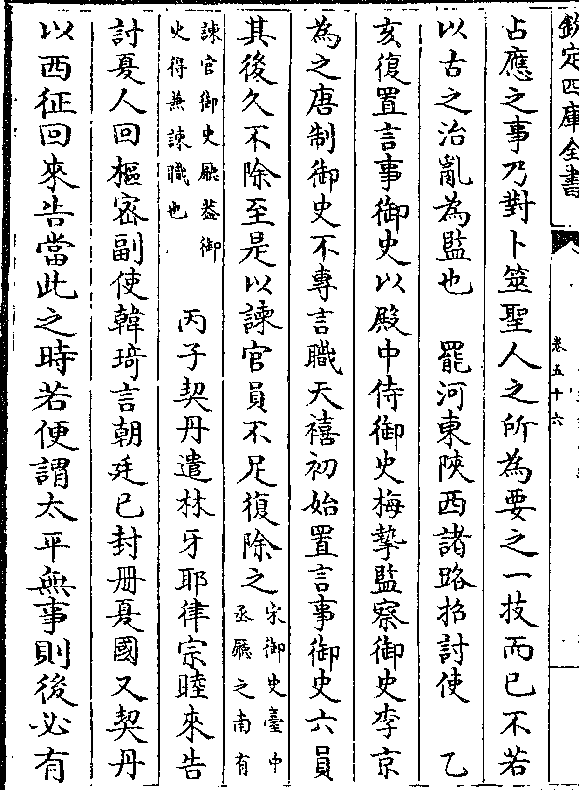 欽定四庫全書
卷五十六
占應之事乃對卜筮聖人之所為要之一技而已不若
以古之治亂為監也　罷河東陝西諸路招討使　乙
亥復置言事御史以殿中侍御史梅摯監察御史李京
為之唐制御史不專言職天禧初始置言事御史六員
其後久不除至是以諫官員不足復除之宋御史臺中丞廳之南有
諫官御史廳葢御史得兼諫職也　丙子契丹遣林牙耶律宗睦來告
討夏人回樞密副使韓琦言朝廷已封冊夏國又契丹
以西征回來告當此之時若便謂太平無事則後必有